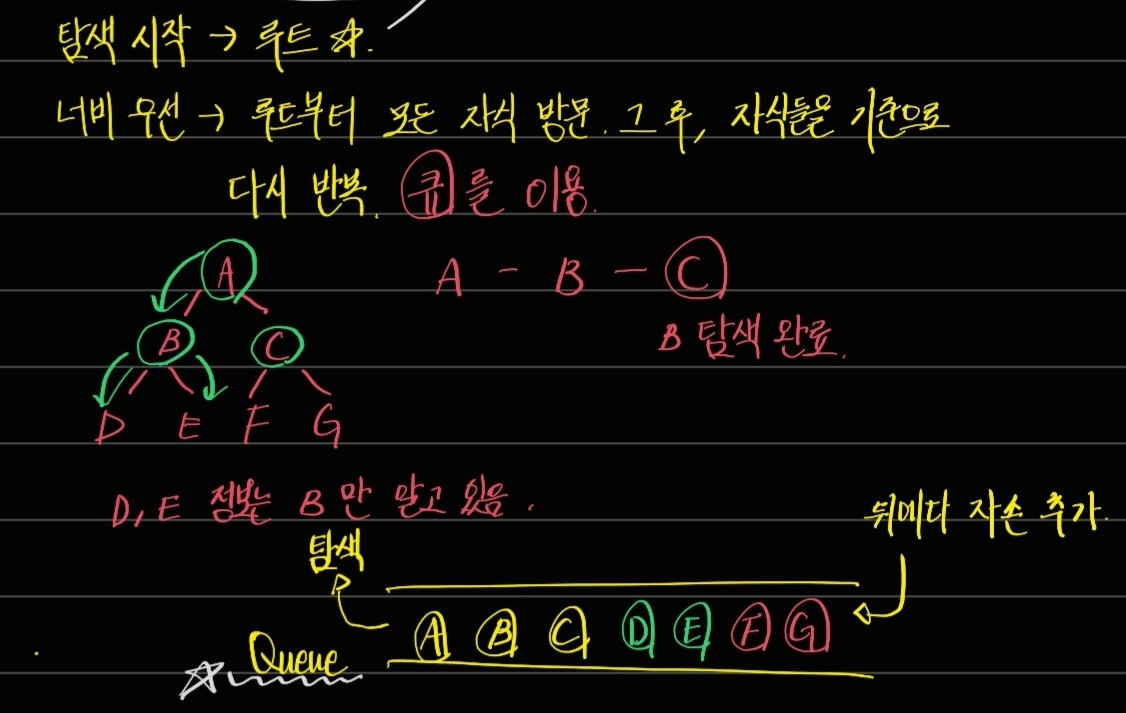 탐색 시작 → 루트 ☆.
너비 우선 → 루트부터 모든 자식 방문. 그 후, 자식들을 기준으로
다시 반복. 큐를 이용.
A
A - B - C
B C
B 탐색 완료.
D E F G
D, E 정보는 B만 알고 있음.
뒤에다 자손 추가.
탐색
A B C D E F G
☆ Queue